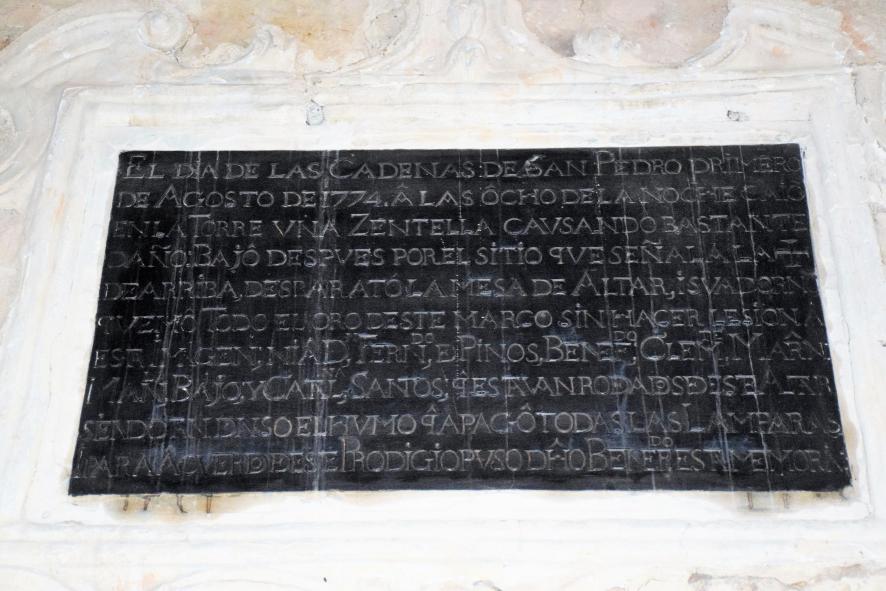 EL DIA DE LAS CADENAS DE SAN PEDRO PRIMERO
DE AGOSTO DE 1774, Â LAS ÔCHO DE LA NOCHE CAIÓ
EN LA TORRE VNA ZENTELLA CAVSANDO BASTANTE
DAÑO: BAJÓ DESPVES POR EL SITIO QVE SEÑALA LA ✝
DE ARRIBA, DESBARATÓ LA MESA DE ALTAR, I SV ADORNO
QVEMO TODO EL ORO DE ESTE MARCO SIN HACER LESION A
ESTA IMAGEN, NI A D. FERN.DO E PINOS, BENEF.DO CLEM. MARÑ
MAÑ. BAJO, Y CAT.NA SANTOS, Q̂ ESTAVAN RODADS DESTE ALTAR
SENDO TAN DENSO EL HVMO Q̂ APAGÔ TODAS LAS LAMPARAS
PARA ÂCVERDO DESTE PRODIGIO PVSO DHO BENEF.DO ESTA MEMORA